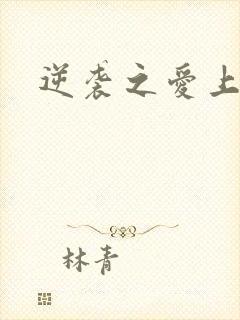 逆袭之爱上
林青